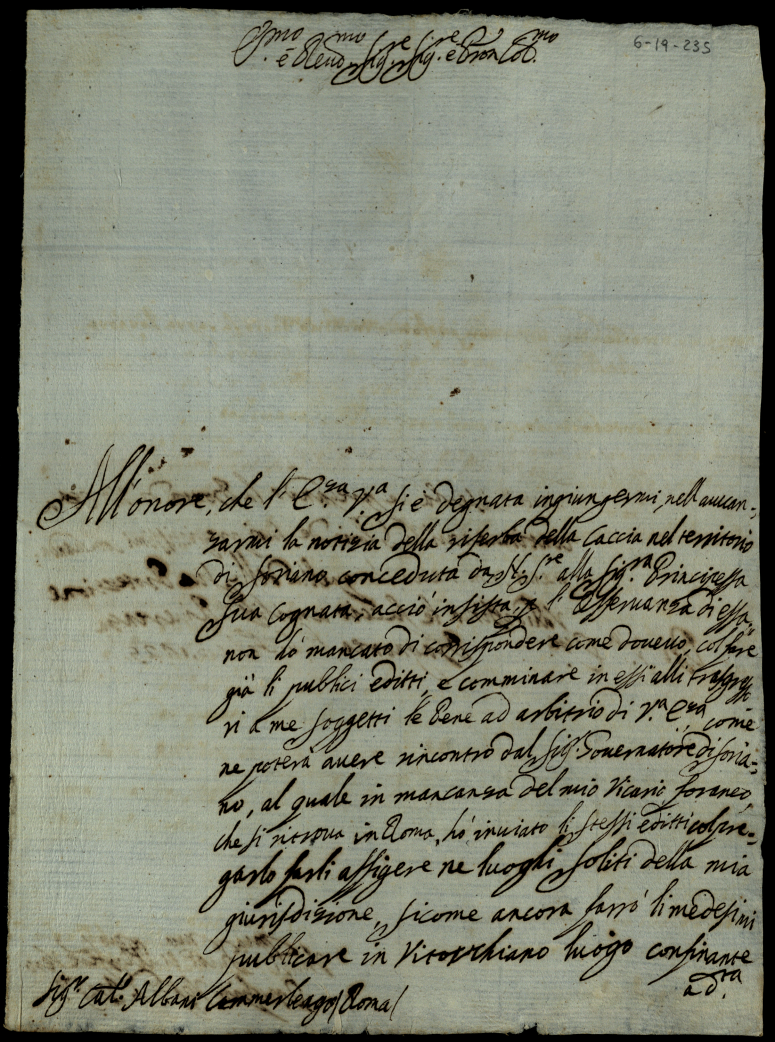 6-19-235
Em̃o e Reud.mo Sig.re Sig.re e Pron Col.mo
All'onore, che l' E.za V.a si è degnata ingiungermi, nell'auuan-
zarmi la notizia della riserba della Caccia nel territorio
di Soriano conceduta da N. S.re alla Sig.ra Principessa
sua Cognata, acciò insista p l'osseruanza di essa,
non hò mancato di corrispondere come doueuo, col fare
già li publici editti, e comminare in essi alli trasgresso
ri a me soggetti le pene ad arbitrio di V.a E.za, come
ne poterà auere rincontro dal Sig.r Gouernatore di Soria-
no, al quale in mancanza del mio Vicario foraneo,
che si ritroua in Roma, hò inuiato li stessi editti col pre-
garlo farli affigere ne luoghi soliti della mia
giurisdizione, sicome ancora farrò li medesimi
publicare in Vitorchiano luogo confinante
a d.ta
Sig.r Card. Albani Cammerlengo /Roma/